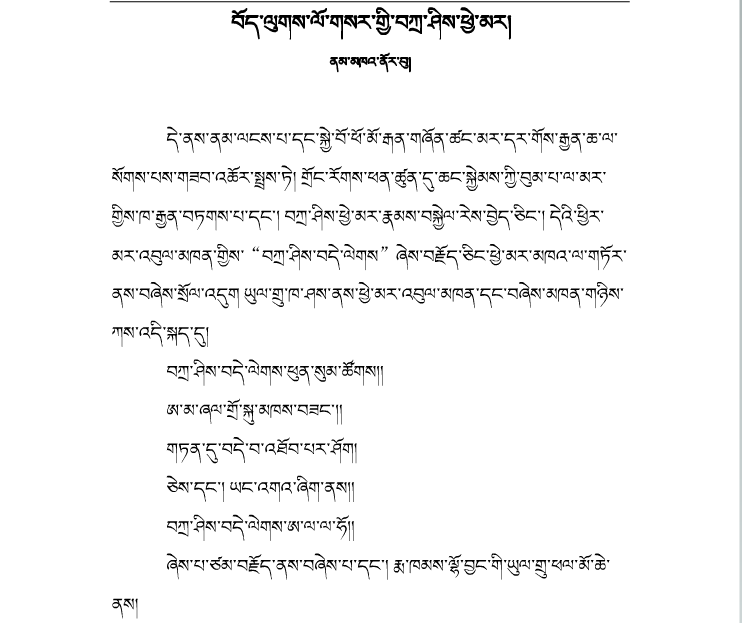 བོད་ལུགས་ལོ་གསར་གྱི་བཀྲ་ཤིས་ཕྱེ་མར།
ནམ་མཁའ་ནོར་བུ།
དེ་ནས་ནམ་ལངས་པ་དང་སྐྱེ་བོ་ཕོ་མོ་རྒན་གཞོན་ཚང་མར་དར་གོས་རྒྱན་ཆ་ལ་
སོགས་པས་གཟབ་འཆོར་སྤྲས་ཏེ། གྲོང་རོགས་ཕན་ཚུན་དུ་ཆང་སྐྱེམས་ཀྱི་བུམ་པ་ལ་མར་
གྱིས་ཁ་རྒྱན་བཏགས་པ་དང་། བཀྲ་ཤིས་ཕྱེ་མར་རྣམས་བསྐྱེལ་རེས་བྱེད་ཅིང་། དེའི་ཕྱིར་
མར་འབུལ་མཁན་གྱིས་ “བཀྲ་ཤིས་བདེ་ལེགས” ཞེས་བརྗོད་ཅིང་ཕྱེ་མར་མཁའ་ལ་གཏོར་
ནས་བཞེས་སྲོལ་འདུག ཡུལ་གྲུ་ཁ་ཤས་ནས་ཕྱེ་མར་འབུལ་མཁན་དང་བཞེས་མཁན་གཉིས་
ཀས་འདི་སྐད་དུ།
བཀྲ་ཤིས་བདེ་ལེགས་ཕུན་སུམ་ཚོགས།།
ཨ་མ་ཞལ་གྲོ་སྐུ་མཁས་བཟང་།།
གཏན་དུ་བདེ་བ་འཐོབ་པར་ཤོག།
ཅེས་དང་། ཡང་འགའ་ཞིག་ནས།།
བཀྲ་ཤིས་བདེ་ལེགས་ཨ་ལ་ལ་ཧོ།།
ཞེས་པ་ཙམ་བརྗོད་ནས་བཞེས་པ་དང་། རྨ་ཁམས་ལྷོ་བྱང་གི་ཡུལ་གྲུ་ཕལ་མོ་ཆེ་
ནས།